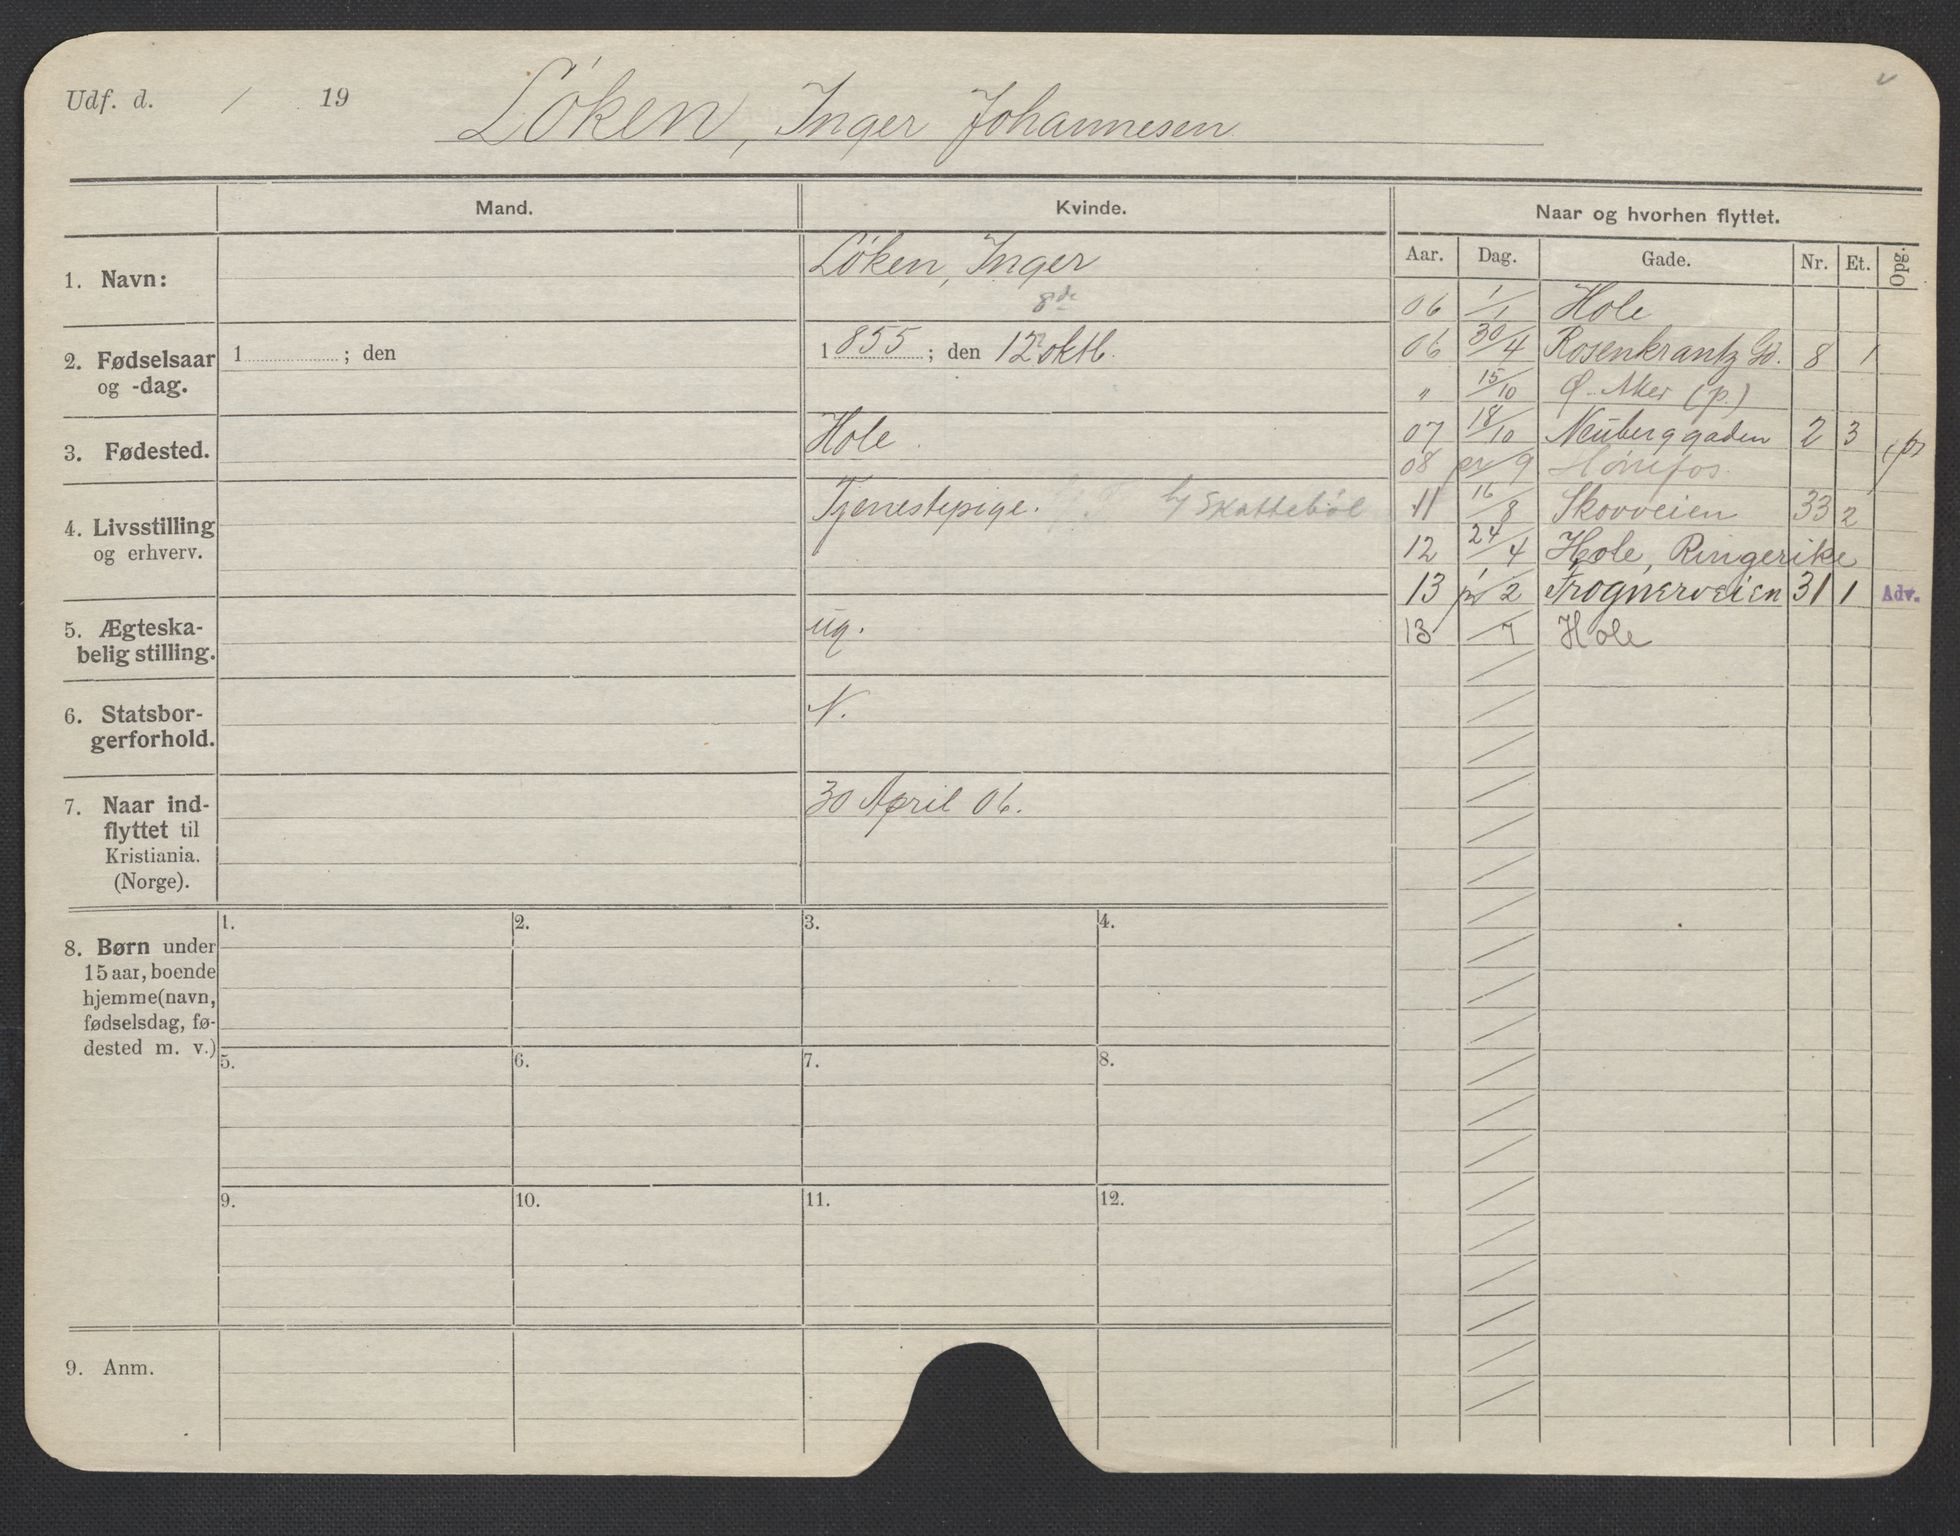 Udf. d. / 19
Løken, Inger Johannesen
Mand.
Kvinde.
Naar og hvorhen flyttet.
Aar. Dag. Gade. Nr. Et. Opg.
1. Navn:
Løken, Inger
8de
2. Fødselsaar
og -dag.
1 ; den
1855 ; den 12 oktb.
3. Fødested.
Hole.
4. Livsstilling
og erhverv.
Tjenestepige. h/ Skattebøl
5. Ægteska-
belig stilling.
ug.
6. Statsbor-
gerforhold.
N.
7. Naar ind-
flyttet til
Kristiania.
(Norge).
30 April 06.
8. Børn under
15 aar, boende
hjemme (navn,
fødselsdag, fø-
dested m. v.)
1. 2. 3. 4.
5. 6. 7. 8.
9. 10. 11. 12.
9. Anm.
06 1/1 Hole
06 30/4 Rosenkrantz Gd. 8 1
" 15/10 Ø. Aker (p.)
07 18/10 Neuberggaden 2 3 (p)
08 pr/9 Hønefos.
11 16/8 Skovveien 33 2
12 24/4 Hole, Ringerike
13 pr/2 Frognerveien 31 1 Adv.
13 /7 Hole